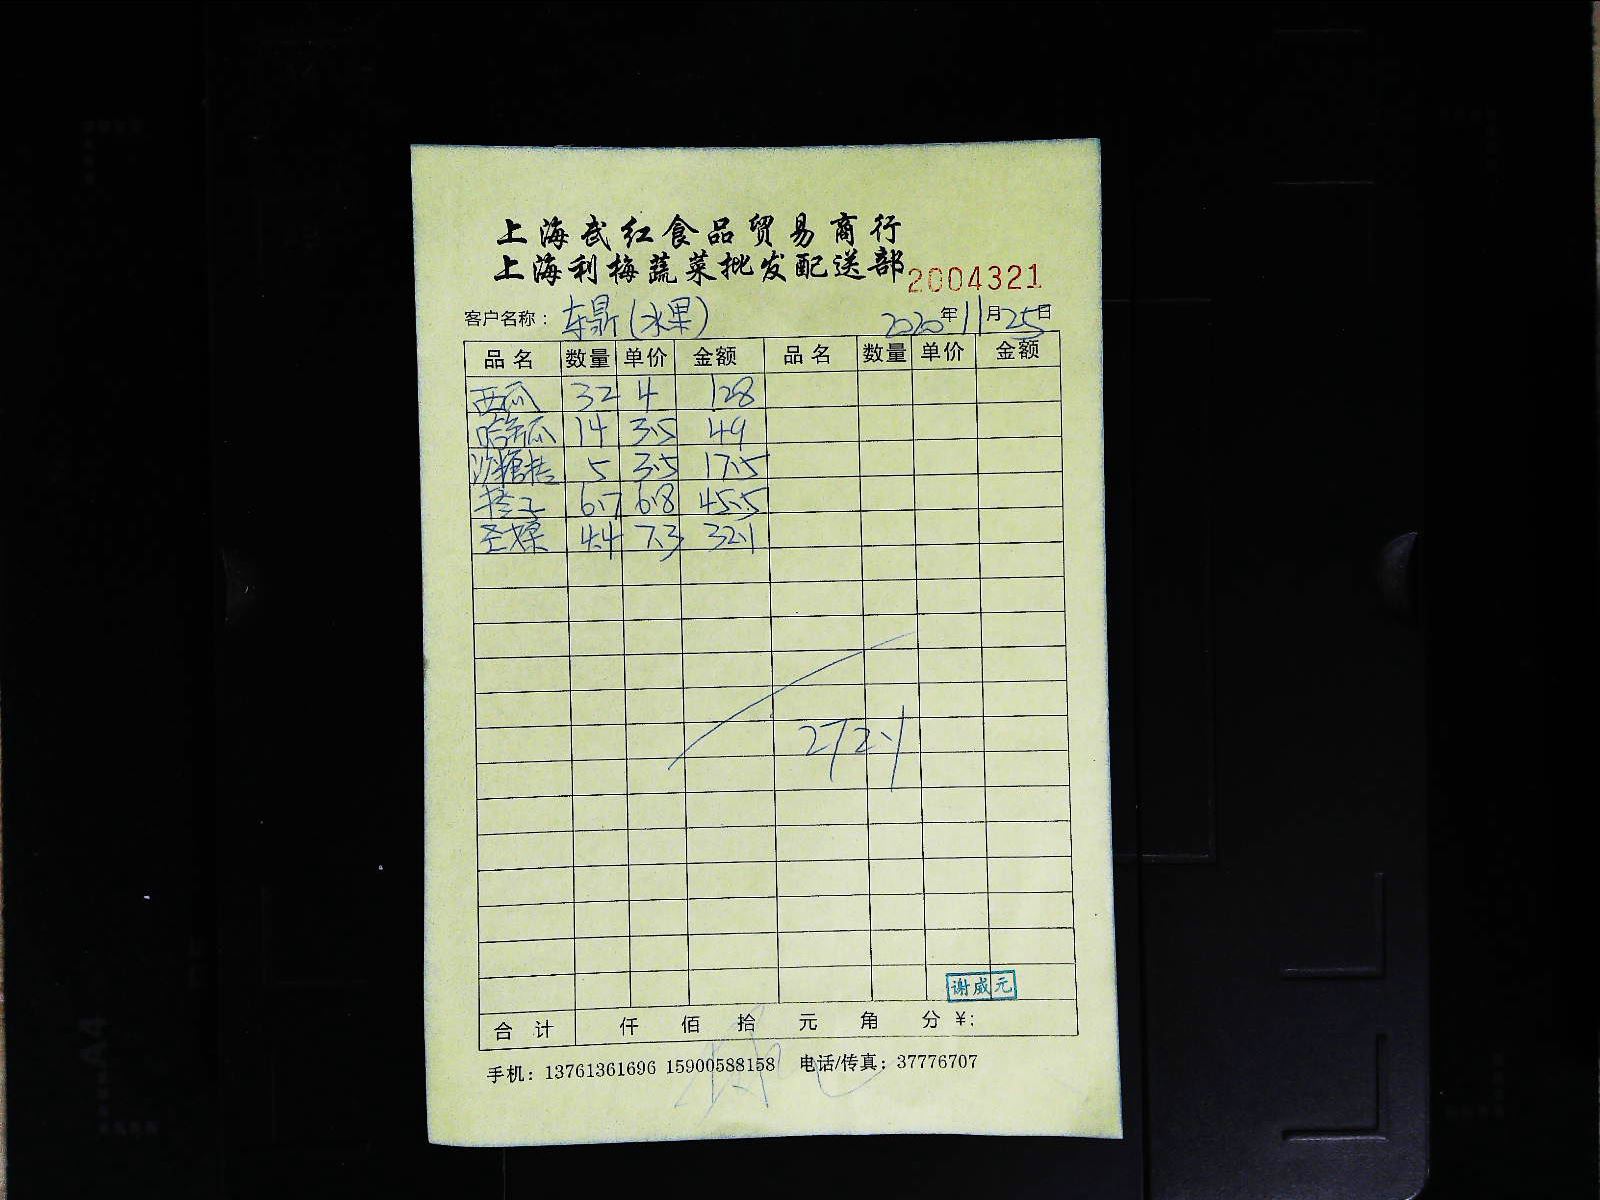 上海武红食品贸易商行
上海利梅蔬菜批发配送部 2004321
客户名称： 东鼎(水果) 2020年11月25日
品名 数量 单价 金额 品名 数量 单价 金额
西瓜 32 4 128
哈密瓜 14 3.5 49
沙糖桔 5 3.5 17.5
桔子 6.7 6.8 45.5
圣女果 4.4 7.3 32.1
272.1
谢威元
合计 仟 佰 拾 元 角 分 ¥:
手机：13761361696 15900588158 电话/传真：37776707